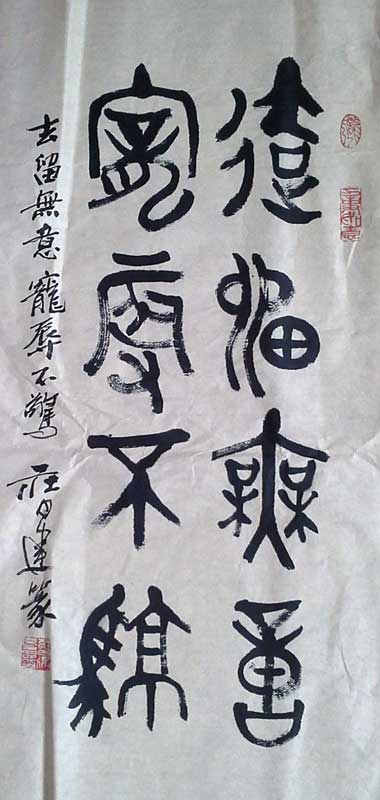 去留無意
寵辱不驚
去留無意寵辱不驚